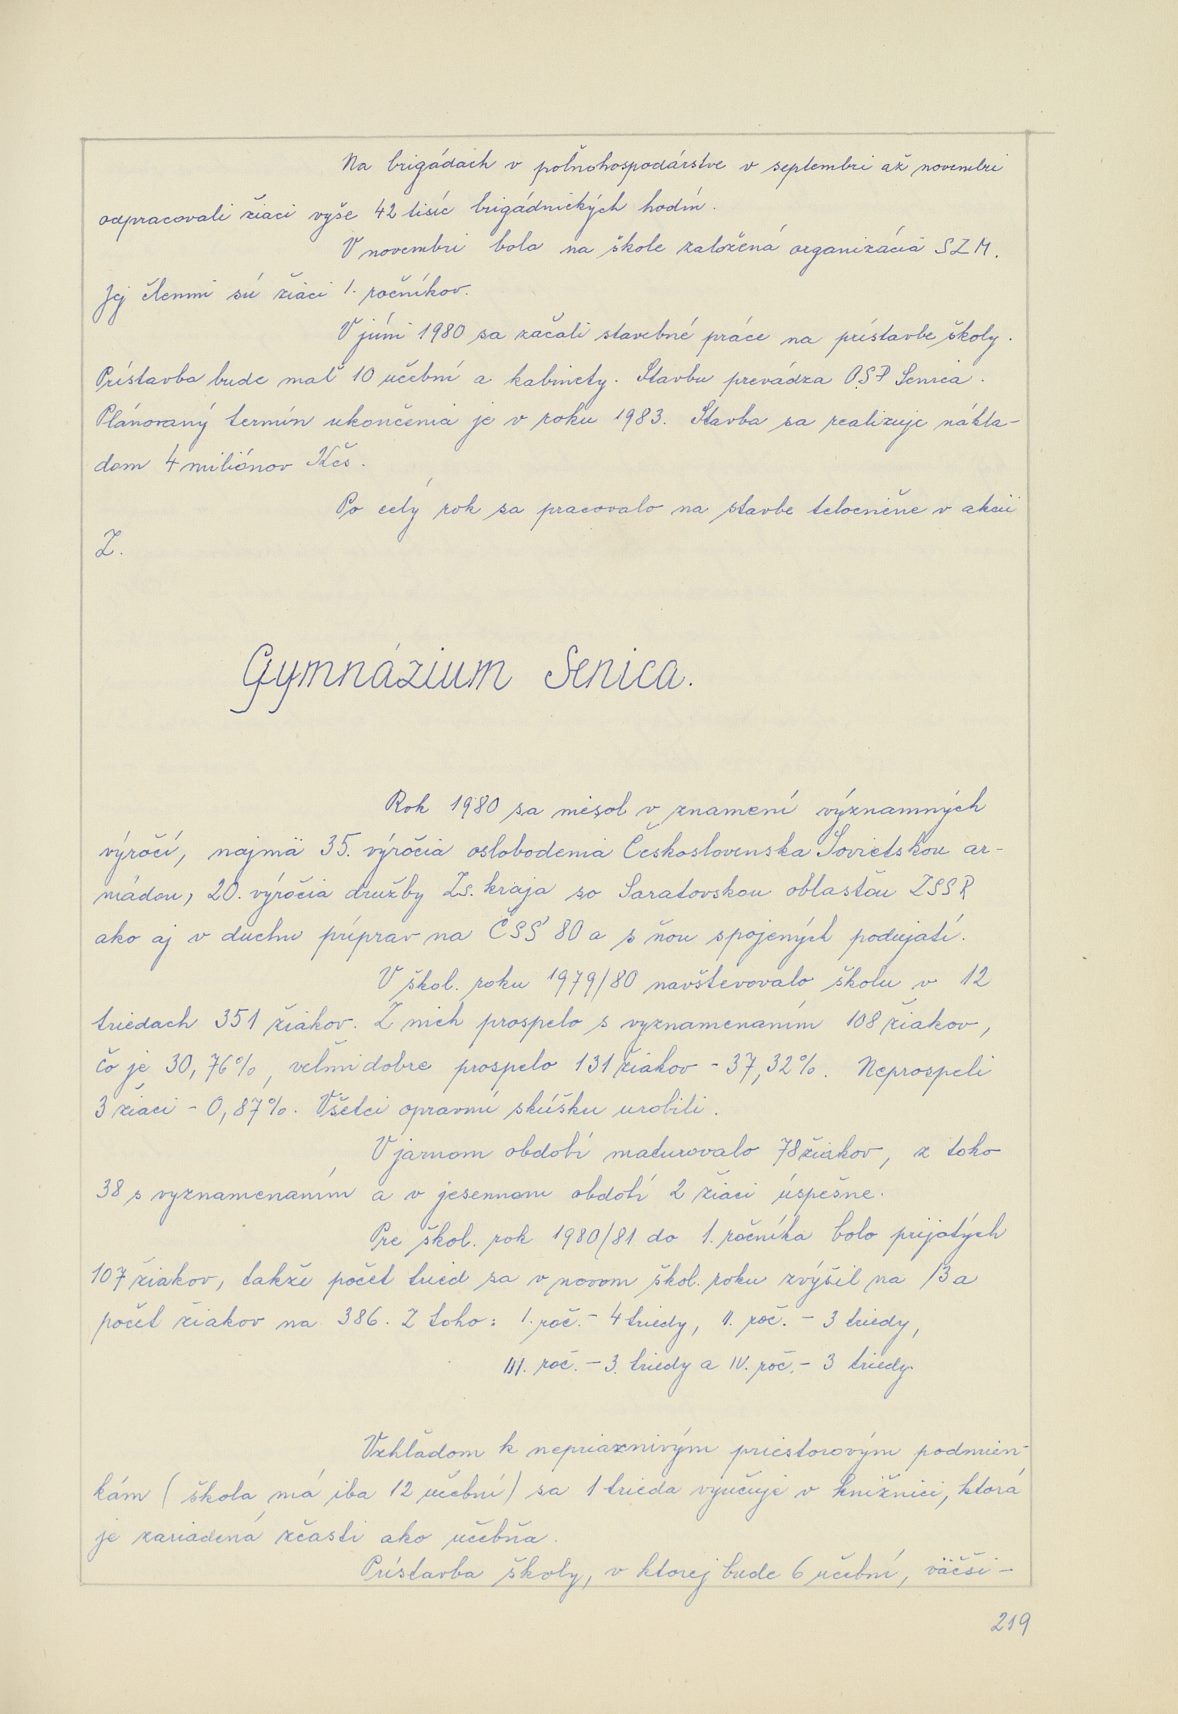 Na brigádach v poľnohospodárstve v septembri až novembri
odpracovali žiaci vyše 42 tisíc brigádnických hodín.
V novembri bola na škole založená organizácia SZM.
Jej členmi sú žiaci 1. ročníkov.
V júni 1980 sa začali stavebné práce na prístavbe školy.
Prístavba bude mať 10 učební a kabinety. Stavbu prevádza OSP Senica.
Plánovaný termín ukončenia je v roku 1983. Stavba sa realizuje nákla-
dom 4 miliónov Kčs.
Po celý rok sa pracovalo na stavbe telocvične v akcii
Z.
Gymnázium Senica.
Rok 1980 sa niesol v znamení významných
výročí, najmä 35. výročia oslobodenia Československa Sovietskou ar-
mádou, 20. výročia družby Zs. kraja so Saratovskou oblasťou ZSSR
ako aj v duchu príprav na ČSS 80 a s ňou spojených podujatí.
V škol. roku 1979/80 navštevovalo školu v 12
triedach 351 žiakov. Z nich prospelo s vyznamenaním 108 žiakov,
čo je 30,76%, veľmi dobre prospelo 131 žiakov - 37,32%. Neprospeli
3 žiaci - 0,87%. Všetci opravnú skúšku urobili.
V jarnom období maturovalo 78 žiakov, z toho
38 s vyznamenaním a v jesennom období 2 žiaci úspešne.
Pre škol. rok 1980/81 do 1. ročníka bolo prijatých
107 žiakov, takže počet tried sa v novom škol. roku zvýšil na 13 a
počet žiakov na 386. Z toho: I. roč. - 4 triedy, II. roč. - 3 triedy,
III. roč. - 3. triedy a IV. roč. - 3 triedy.
Vzhľadom k nepriaznivým priestorovým podmien-
kám (škola má iba 12 učební) sa 1 trieda vyučuje v knižnici, ktorá
je zariadená zčasti ako učebňa.
Prístavba školy, v ktorej bude 6 učební, väčši-
219